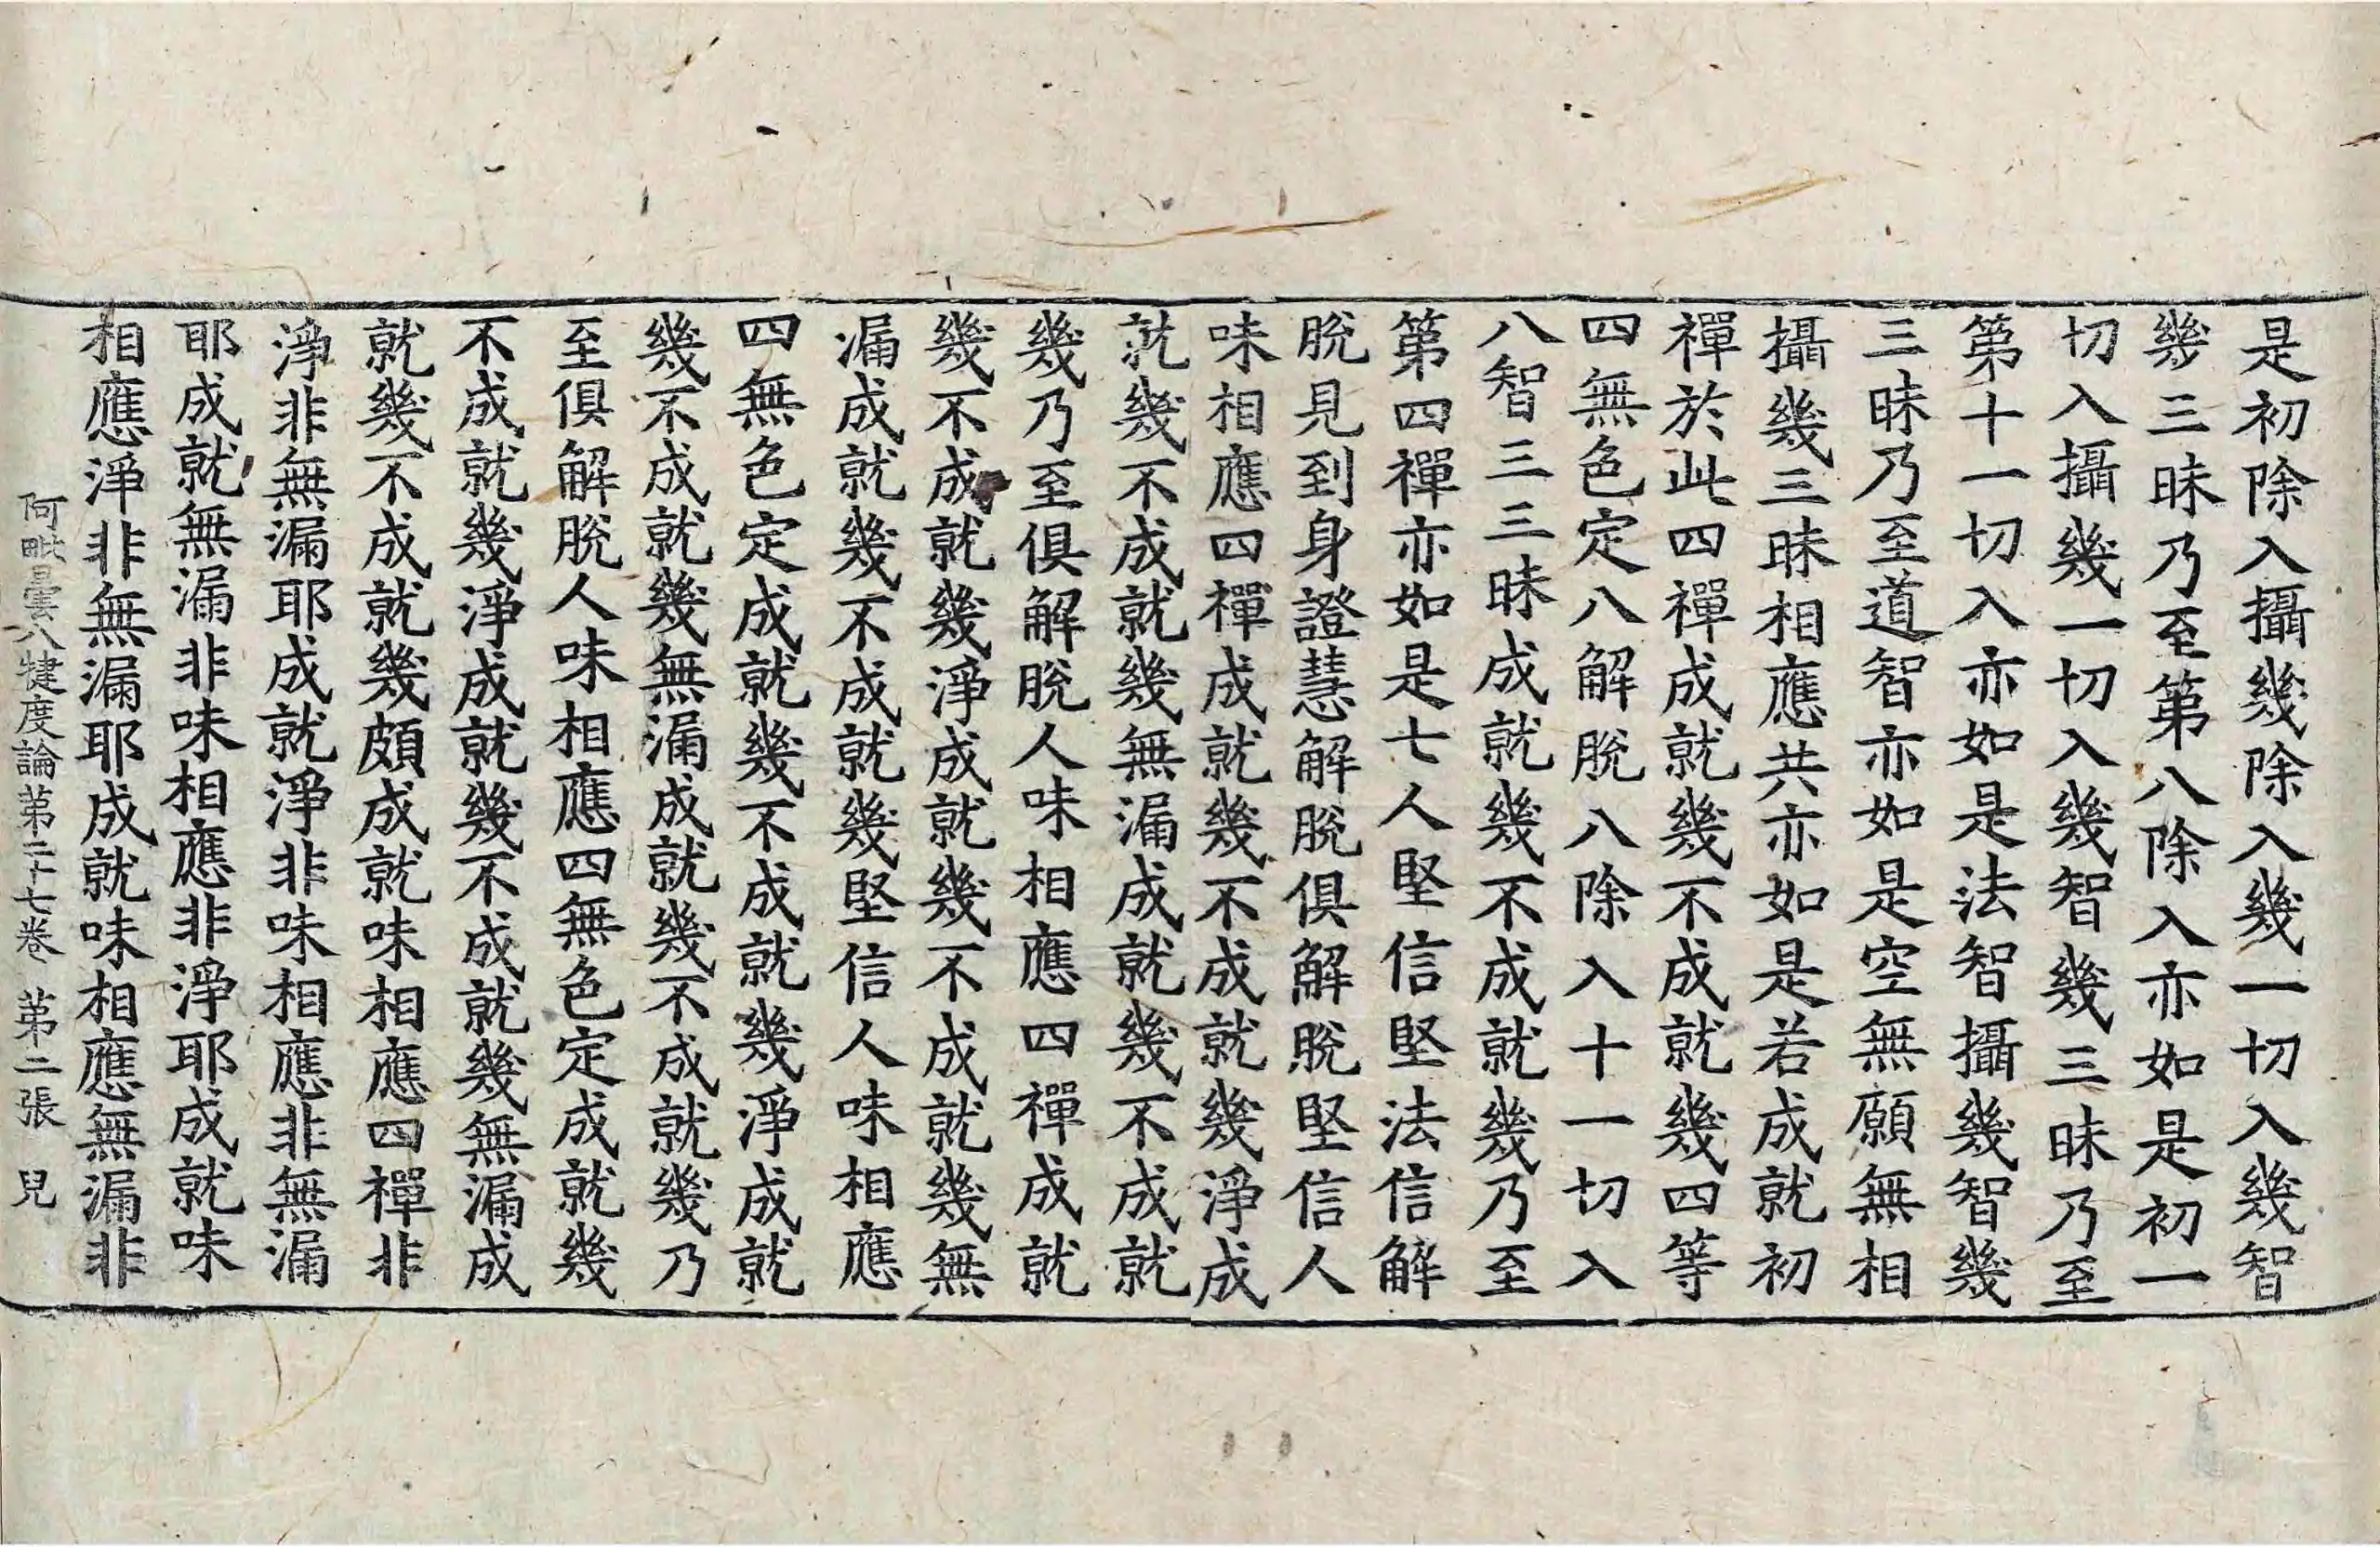 是初除入攝幾除入幾一切入幾智
幾三昧乃至第八除入亦如是初一
切入攝幾一切入幾智幾三昧乃至
第十一切入亦如是法智攝幾智幾
三昧乃至道智亦如是空無願無相
攝幾三昧相應共亦如是若成就初
禪於此四禪成就幾不成就幾四等
四無色定八解脫八除入十一切入
八智三三昧成就幾不成就幾乃至
第四禪亦如是七人堅信堅法信解
脫見到身證慧解脫俱解脫堅信人
味相應四禪成就幾不成就幾淨成
就幾不成就幾無漏成就幾不成就
幾乃至俱解脫人味相應四禪成就
幾不成就幾淨成就幾不成就幾無
漏成就幾不成就幾堅信人味相應
四無色定成就幾不成就幾淨成就
幾不成就幾無漏成就幾不成就幾乃
至俱解脫人味相應四無色定成就幾
不成就幾淨成就幾不成就幾無漏成
就幾不成就幾頗成就味相應四禪非
淨非無漏耶成就淨非味相應非無漏
耶成就無漏非味相應非淨耶成就味
相應淨非無漏耶成就味相應無漏非
阿毗曇八犍度論第二十七卷 第二張 兒